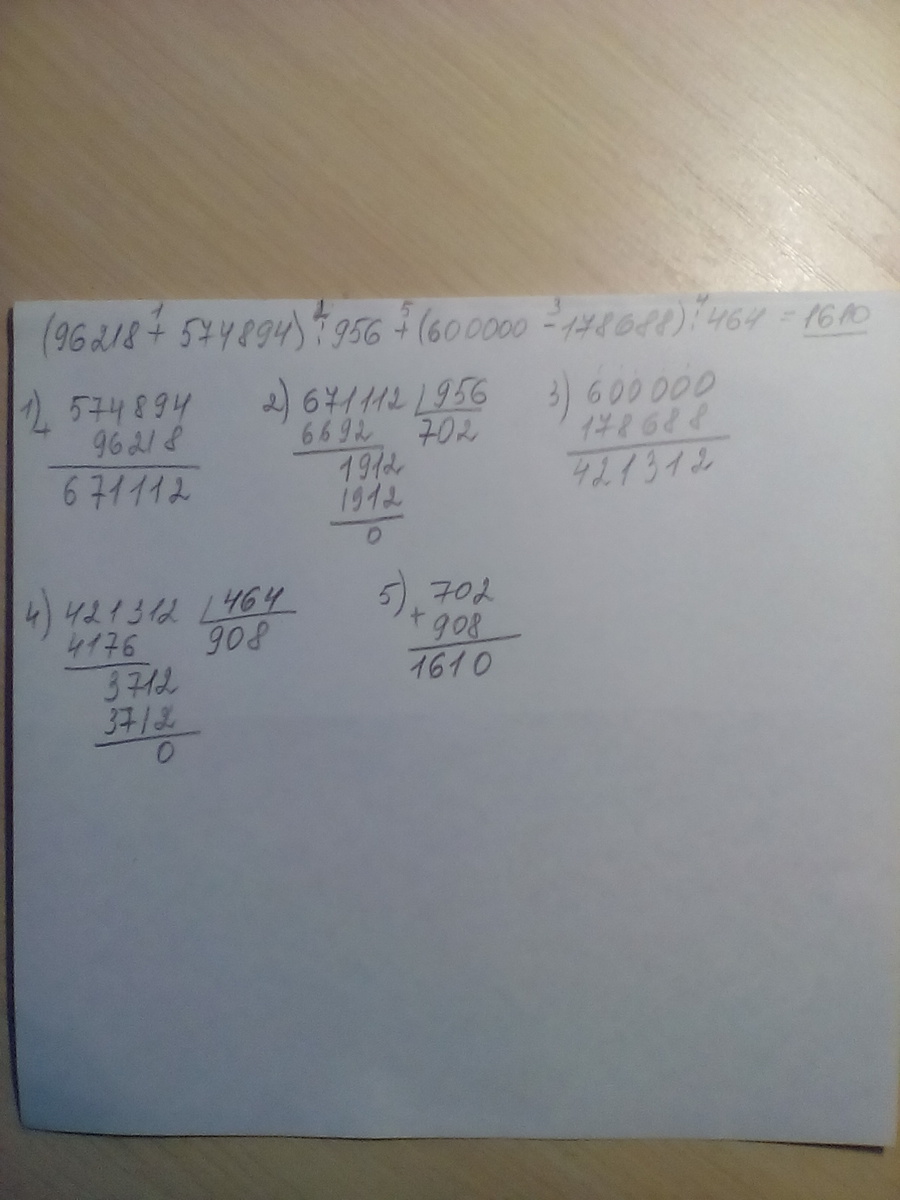 (96218 + 574894) : 956 + (600000 - 178688) : 464 = 1610
1 2 5 3 4
1) + 574894
96218
671112
2) 671112 | 956
6692 702
1912
1912
0
3) 600000
178688
421312
4) 421312 | 464
4176 908
3712
3712
0
5) + 702
908
1610